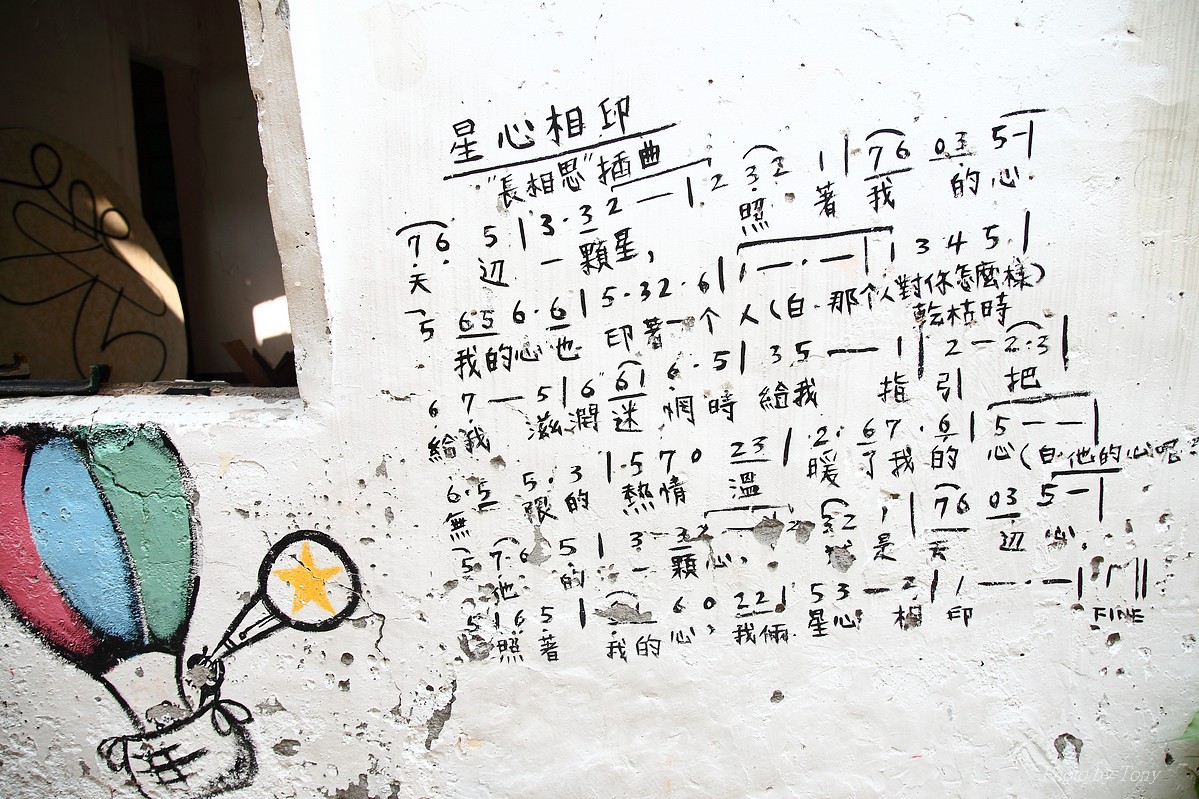 星心相印
"長相思"插曲
7 6 5 | 3 · 3 2 — | 2 3 2 1 | 7 6 0 3 5 — |
天 辺 一顆星, 照 著 我 的心.
5 6 5 6 · 6 | 5 · 3 2 · 6 | 1 — · — | 3 4 5 |
我的心也 印著一个 人(白·那个人對你怎麼樣)
乾枯時
6 7 — 5 | 6 6 1 6 · 5 | 3 5 — 1 | 2 — 2 · 3 |
給我 滋潤 迷 惘時 給我 指 引 把
6 · 5 5 · 3 | · 5 7 0 2 3 | 2 · 6 7 · 6 | 5 — — |
無 限的 熱情 溫 暖 了我的 心(白·他的心呢?
5 7 · 6 5 | 3 · 3 2 3 2 1 | 7 6 0 3 5 — |
他 的 一 顆心, 是 天 辺 心,
5 1 6 5 | 6 0 2 2 | 5 3 — 2 | 1 — · — |
照著 我的心, 我倆 星心 相 印
FINE
Photo by Tony